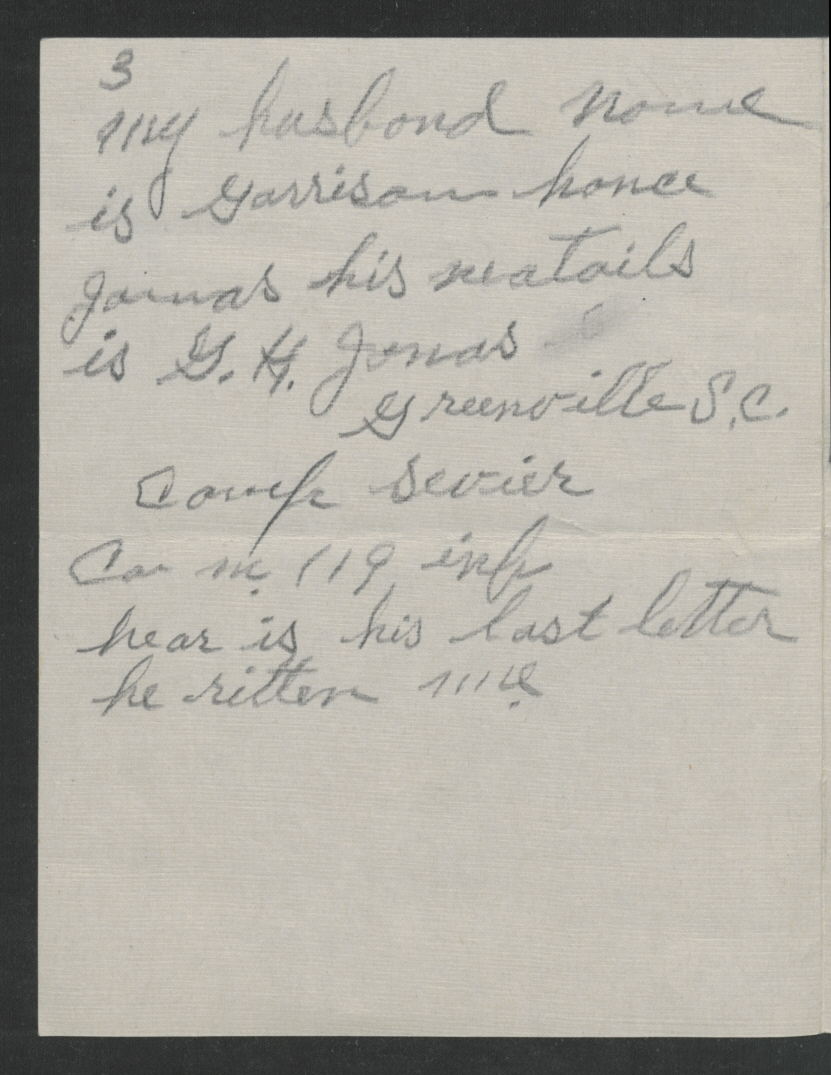 3
my husbond nome
is Garrison honce
Jonas his neatails
is G. H. Jonas
Greenville S.C.
Camp Sevier
Co m. 119 inf
hear is his last letter
he ritten me.